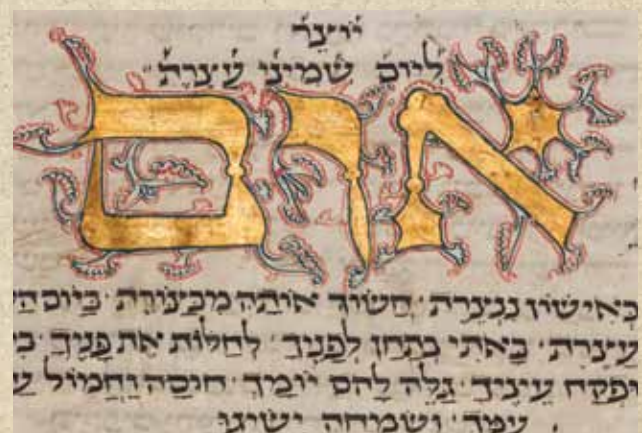 יוצר
ליום שמיני עצרת
אום
כאישון ננצרת · חשוך אותה מבצורת · ביום
עצרת · באתי בתחן לפניך · לחלות את פניך ·
ופקח עיניך · גלה להם יומך · חוסה וחמול
עמך · ושמחה ישיגו